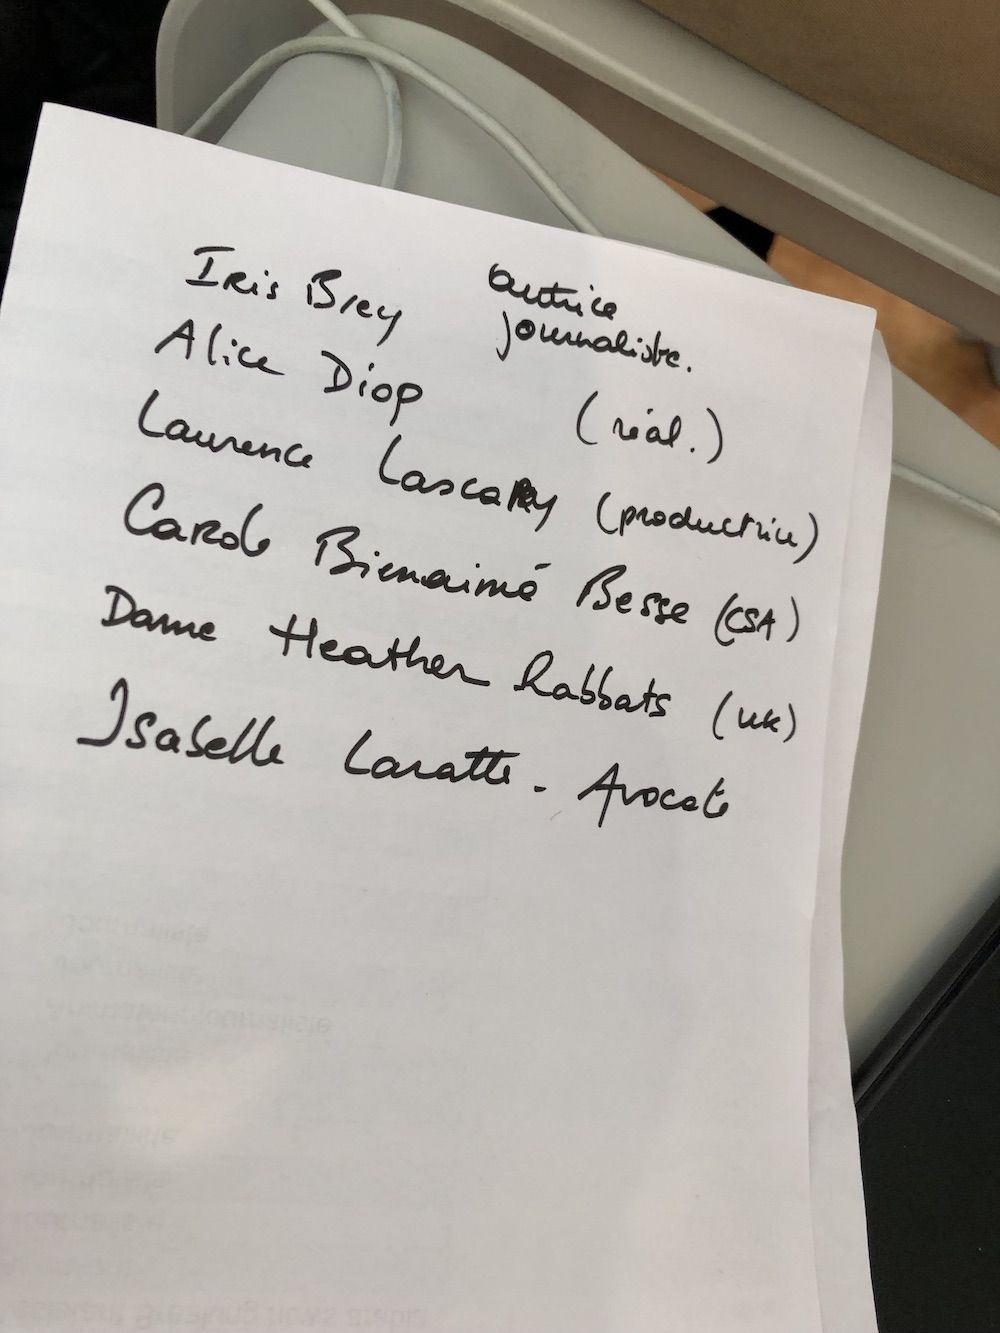 Iris Brey autrice
journaliste.
Alice Diop (réal.)
Laurence Lascary (productrice)
Carole Bienaimé Besse (CSA)
Dame Heather Rabbats (UK)
Isabelle Laratte. Avocate
Journaliste
Journaliste